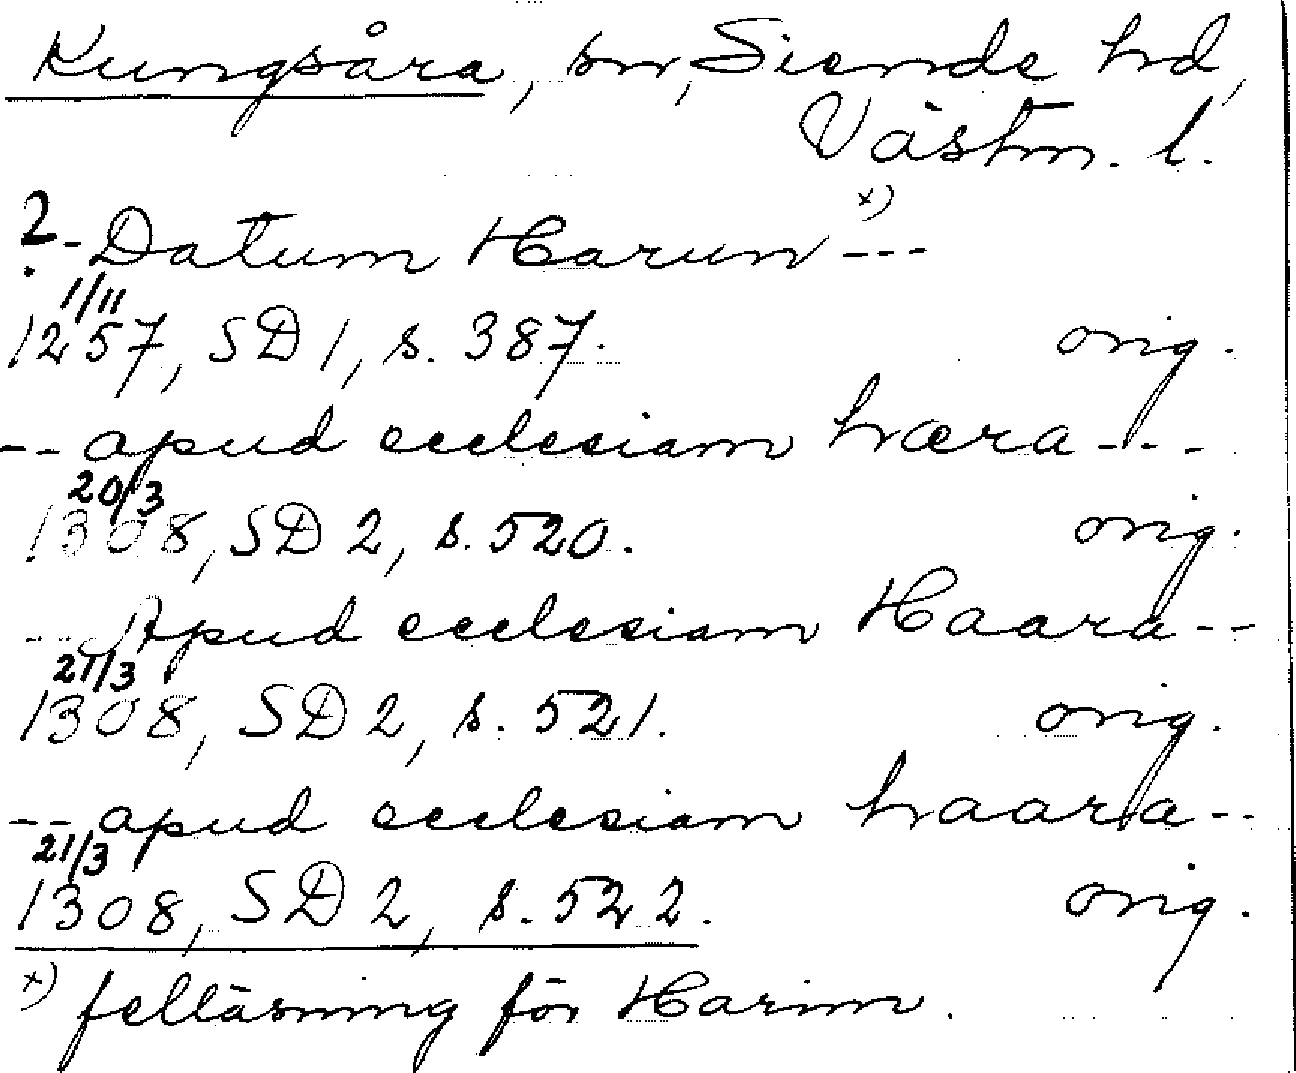 Kungsåra, sn, Siende hd,
Västm. l.
? - Datum Harun x) ---
1/11
1257, SD 1, s. 387. orig.
-- apud ecclesiam hæra ---
20/3
1308, SD 2, s. 520. orig.
-- Apud ecclesiam Haara --
21/3
1308, SD 2, s. 521. orig.
-- apud ecclesiam haara --
21/3
1308, SD 2, s. 522. orig.
x) felläsning för Harim.